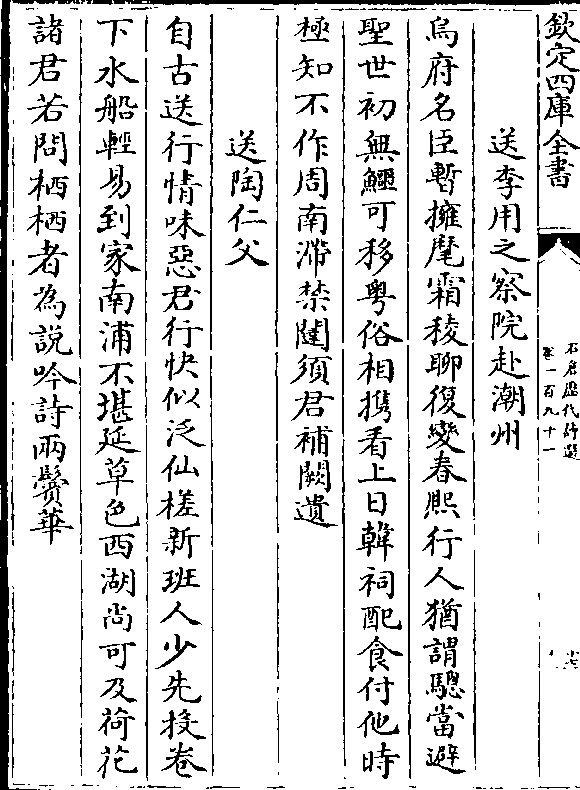 欽定四庫全書
石倉歷代詩選
卷一百九十一
送李用之察院赴潮州
烏府名臣暫擁麾霜稜聊復變春熙行人猶謂驄當避
聖世初無鱷可移粵俗相携看上日韓祠配食付他時
極知不作周南滯禁闥須君補闕遺
送陶仁父
自古送行情味惡君行快似泛仙槎新班人少先投卷
下水船輕易到家南浦不堪延草色西湖尚可及荷花
諸君若問栖栖者為說吟詩兩鬢華